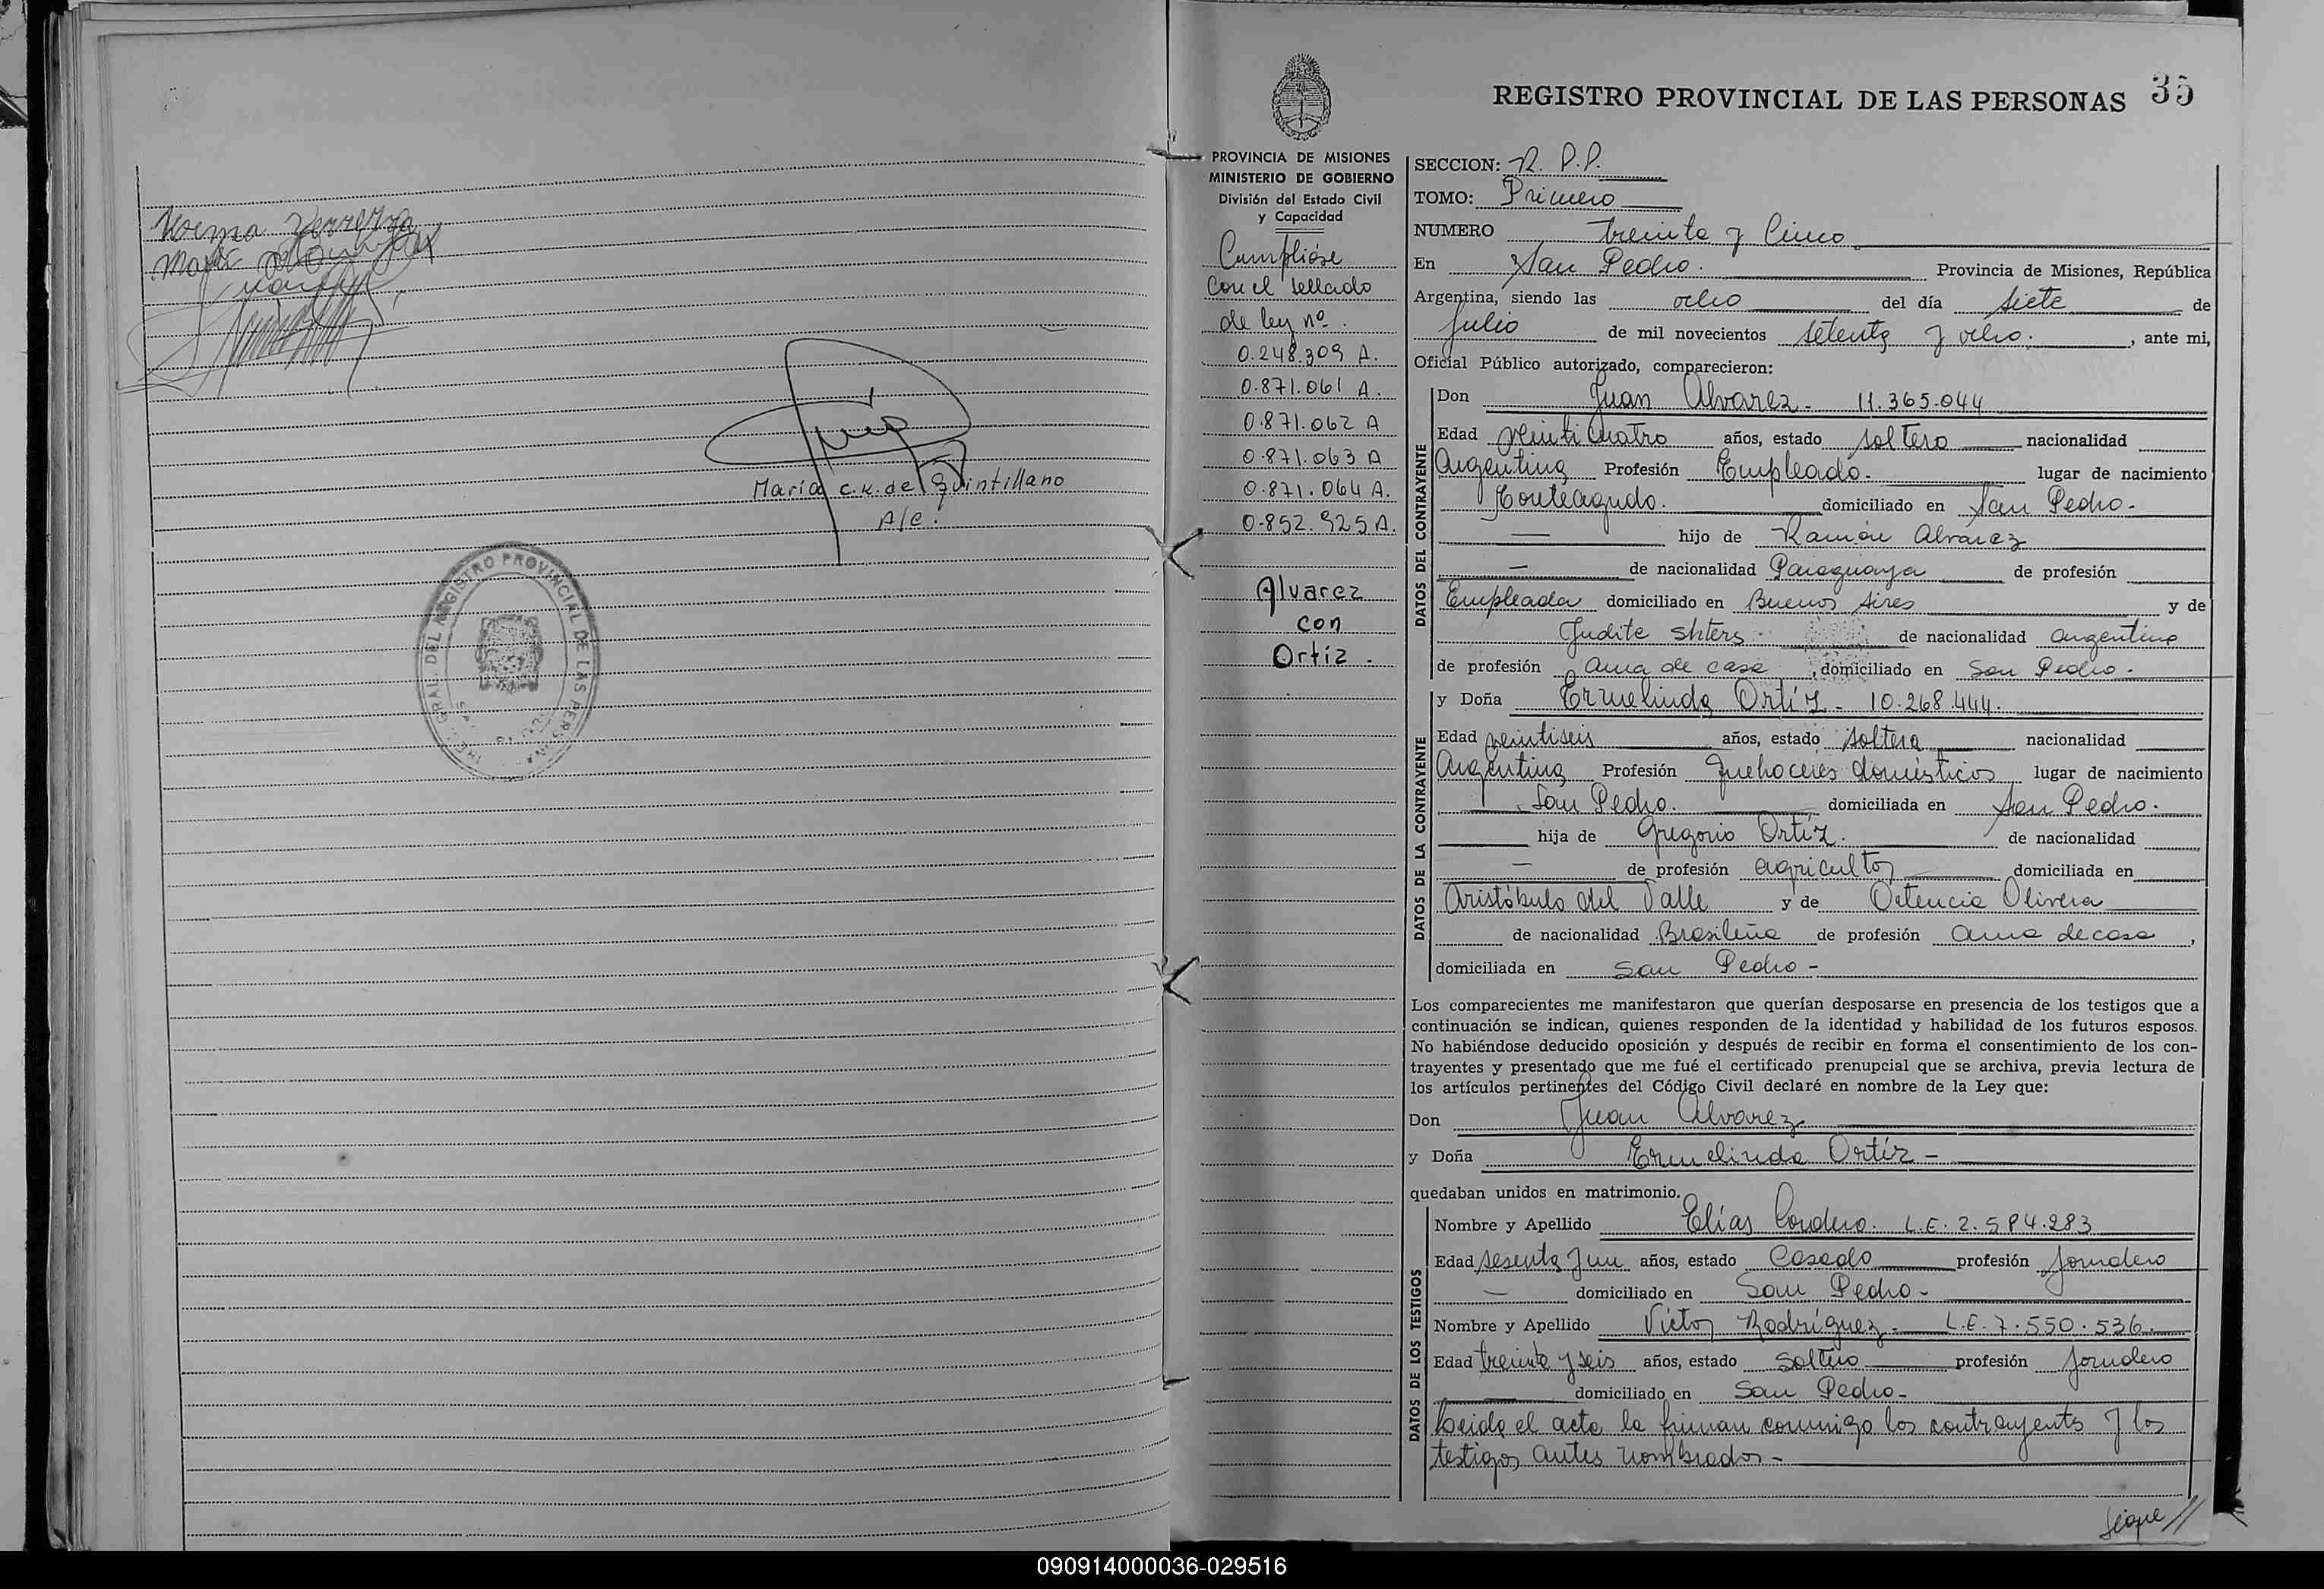 Norma Ferreyra
María C.K. de Quintillano
A/C.
GRAL. DEL REGISTRO PROVINCIAL DE LAS PERSONAS
REGISTRO PROVINCIAL DE LAS PERSONAS 35
PROVINCIA DE MISIONES
MINISTERIO DE GOBIERNO
División del Estado Civil
y Capacidad
Cumplióse
con el sellado
de ley nº.
0.248.309 A.
0.871.061 A.
0.871.062 A
0.871.063 A
0.871.064 A.
0.852.925 A.
Alvarez
con
Ortiz.
SECCION: R. P.P.
TOMO: Primero
NUMERO treinta y Cinco
En San Pedro. Provincia de Misiones, República
Argentina, siendo las ocho del día siete de
Julio de mil novecientos setenta y ocho. , ante mi,
Oficial Público autorizado, comparecieron:
DATOS DEL CONTRAYENTE
Don Juan Alvarez - 11.365.044
Edad veinticuatro años, estado soltero nacionalidad
Argentina Profesión Empleado. lugar de nacimiento
Monteagudo. domiciliado en San Pedro.
— hijo de Ramón Alvarez
— de nacionalidad Paraguaya de profesión
Empleado domiciliado en Buenos Aires y de
Judite de nacionalidad argentina
de profesión ama de casa , domiciliado en San Pedro.
DATOS DE LA CONTRAYENTE
y Doña Ermelinda Ortíz - 10.268.444.
Edad veintiseis años, estado soltera nacionalidad
Argentina Profesión Quehaceres domésticos lugar de nacimiento
San Pedro. domiciliada en San Pedro.
hija de Gregorio Ortíz. de nacionalidad
— de profesión agricultor domiciliada en
Aristóbulo del Valle y de Olivera
de nacionalidad Brasileña de profesión ama de casa ,
domiciliada en San Pedro -
Los comparecientes me manifestaron que querían desposarse en presencia de los testigos que a
continuación se indican, quienes responden de la identidad y habilidad de los futuros esposos.
No habiéndose deducido oposición y después de recibir en forma el consentimiento de los con-
trayentes y presentado que me fué el certificado prenupcial que se archiva, previa lectura de
los artículos pertinentes del Código Civil declaré en nombre de la Ley que:
Don Juan Alvarez
y Doña Ermelinda Ortíz -
quedaban unidos en matrimonio.
DATOS DE LOS TESTIGOS
Nombre y Apellido Elías Cordero. L.E. 2.584.283
Edad sesenta y un años, estado Casado profesión Jornalero
— domiciliado en San Pedro -
Nombre y Apellido Victor Rodríguez - L.E. 7.550.536.
Edad treinta y seis años, estado soltero profesión Jornalero
domiciliado en San Pedro -
Leida el acta la firman conmigo los contrayentes y los
testigos antes nombrados -
Sigue //
090914000036-029516